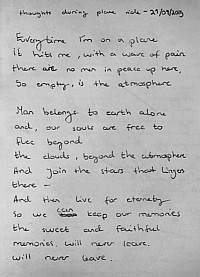 thoughts during plane ride - 21/01/2019
Everytime I'm on a plane
it hits me, with a wave of pain
there are no men in peace up here,
So empty, is the atmosphere
Man belongs to earth alone
and, our souls are free to
flee beyond
the clouds, beyond the atmosphere
And join the stars that
there -
And then live for eternity
So we can keep our memories
the sweet and faithful
memories, will never leave.
will never leave.